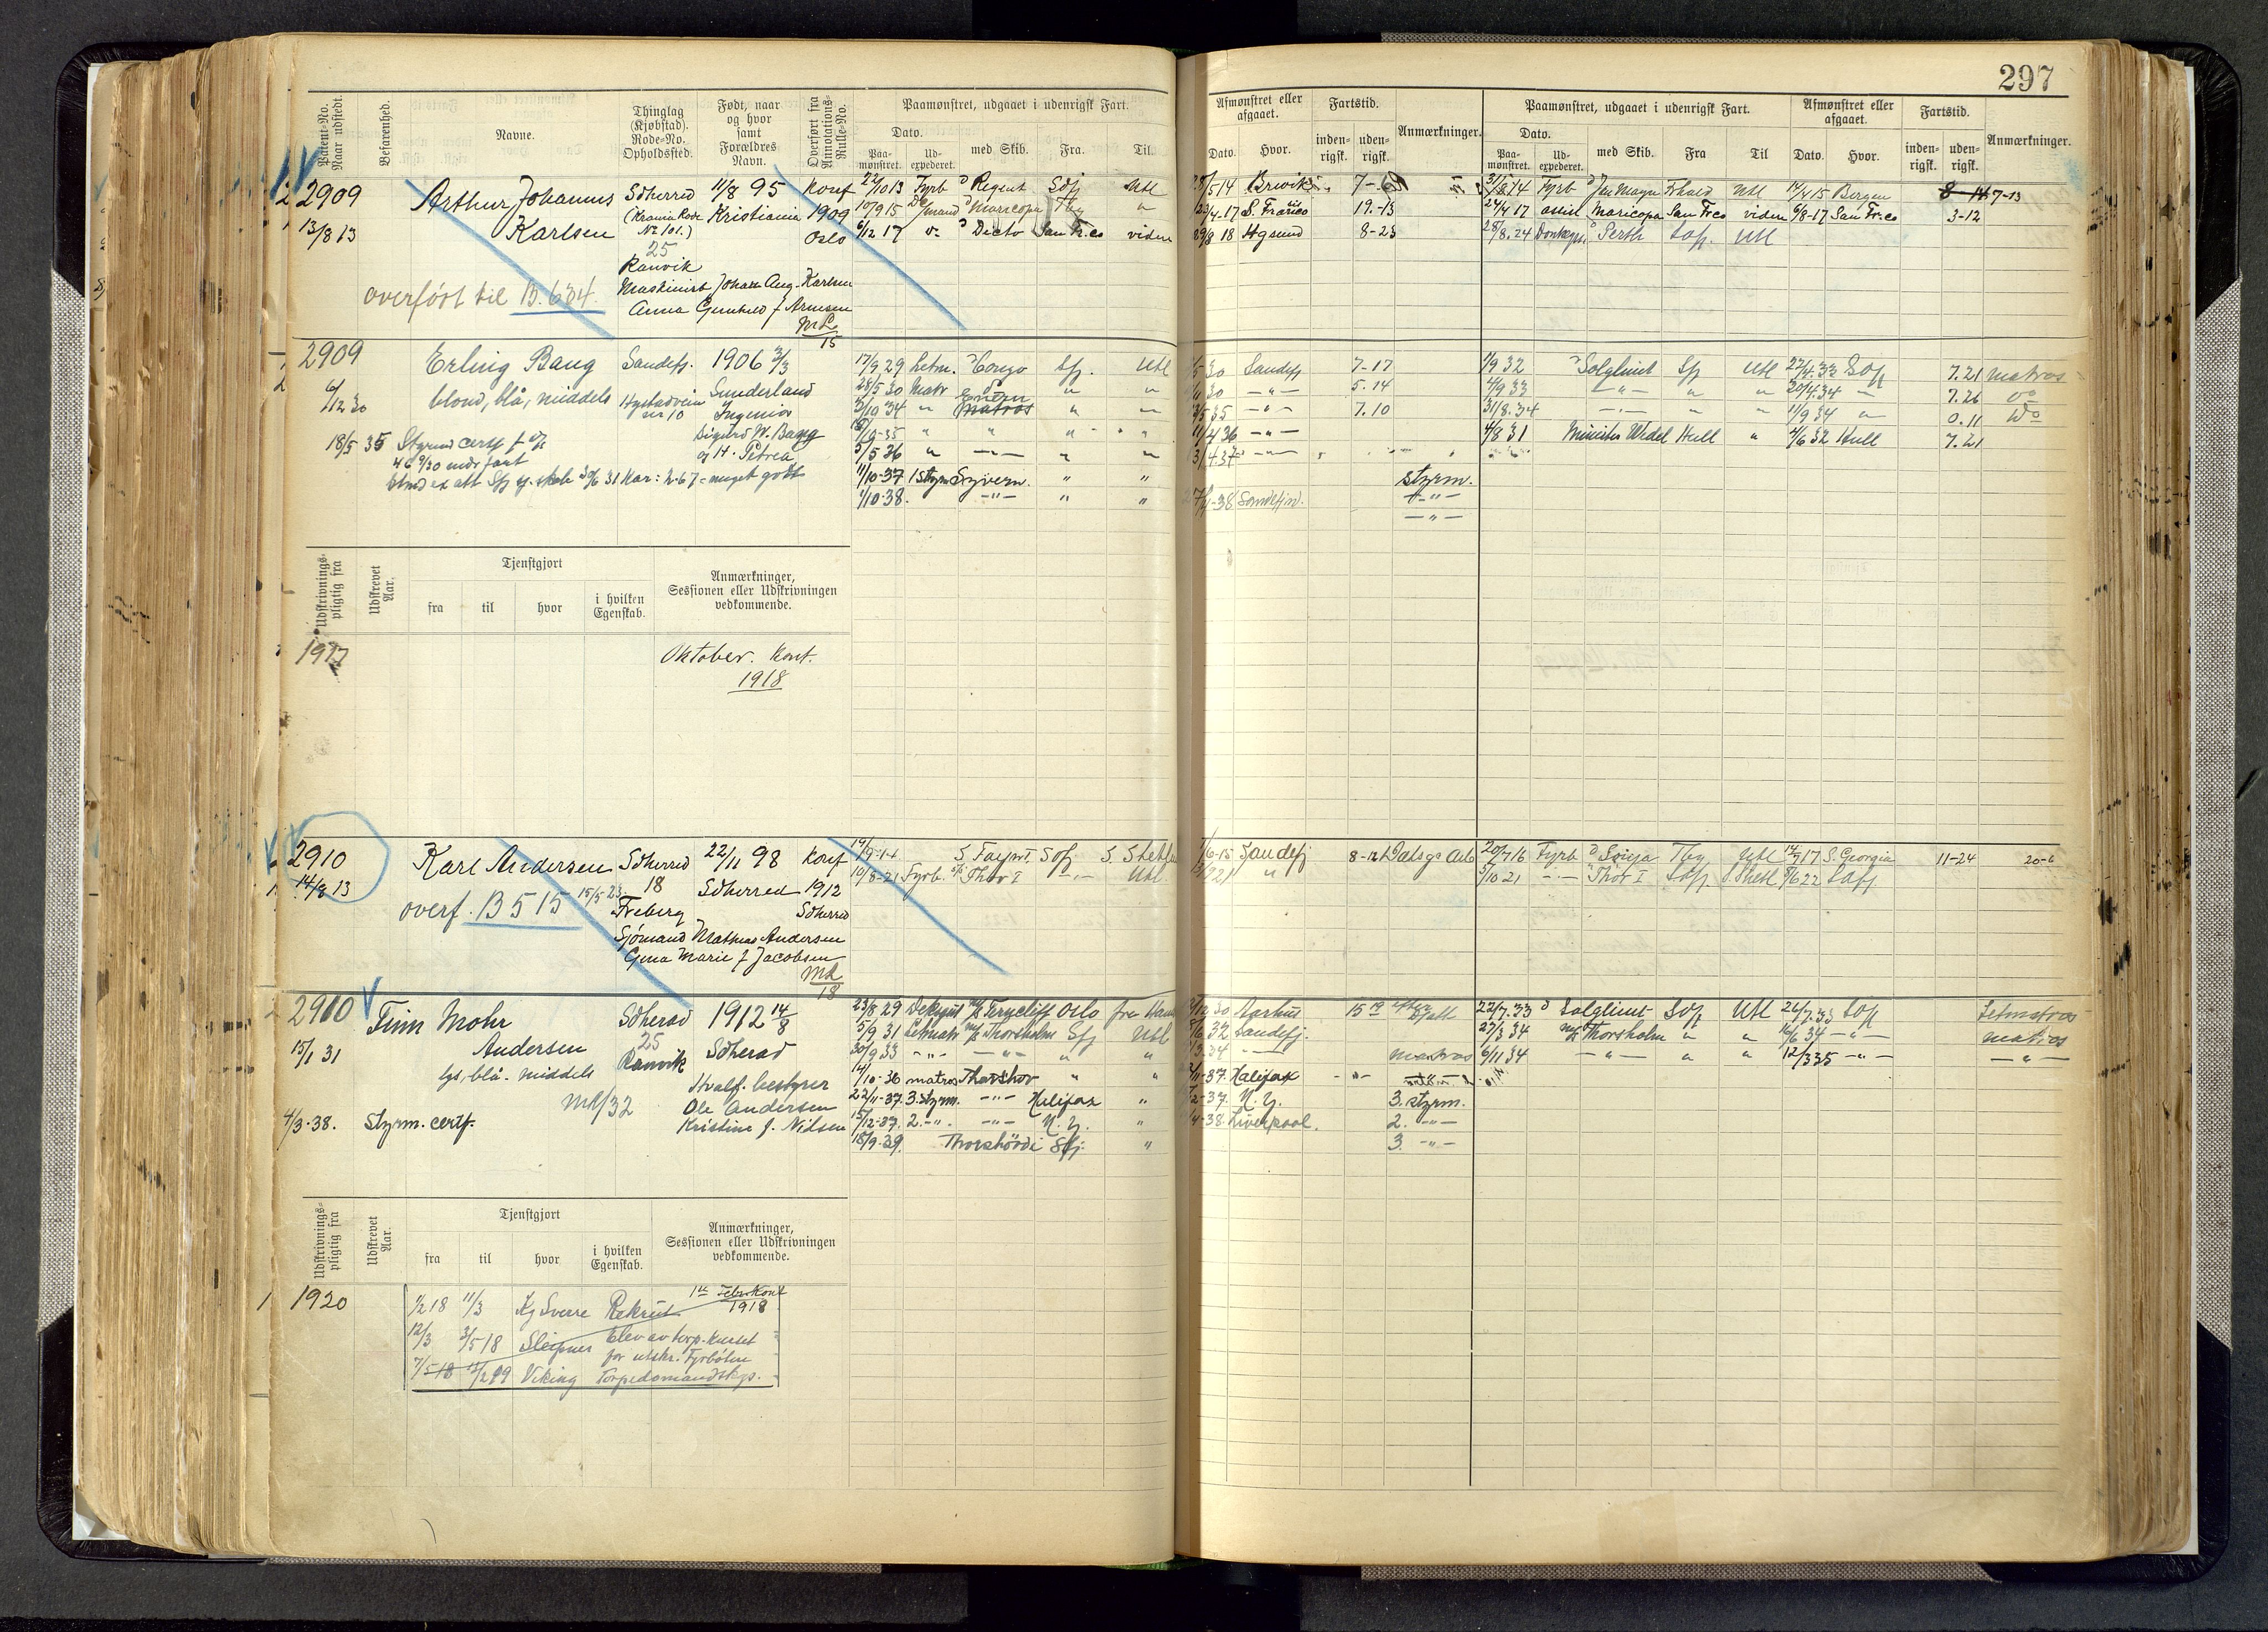 297
Patent-No. Naar udstedt.
Befarenhed.
Navne.
Thinglag (Kjøbstad). Rode-No. Opholdssted.
Født, naar og hvor samt Forældres Navn.
Overført fra Annotations-Rulle-No.
Paamønstret, udgaaet i udenrigsk Fart.
Dato.
Paa-mønstret.
Ud-expederet.
med Skib.
Fra.
Til.
Afmønstret eller afgaaet.
Dato.
Hvor.
Fartstid.
inden-rigsk.
uden-rigsk.
Anmærkninger.
Paamønstret, udgaaet i udenrigsk Fart.
Dato.
Paa-mønstret.
Ud-expederet.
med Skib.
Fra
Til
Afmønstret eller afgaaet.
Dato.
Hvor.
Fartstid.
inden-rigsk.
uden-rigsk.
Anmærkninger.
2909
13/8 13
Arthur Johannes
Karlsen
overført til B. 634.
Sdherred
(Krania Rode
No 101.)
25
Ranvik
Maskinist Johan Aug. Karlsen
Anna Gunhild f Arnesen
11/8 95
Kristiania
Konf
1909
Oslo
15
22/10 13 Fyrb D Regent Sdfj Utl
10/9 15 Maricopa Tbg "
6/12 17 Dicto San Fr.co videre
28/5 14 Brevik
23/4-17 S. Francisco 19.-13
29/8 18 Hgsund 8-23
31/8 14 Fyrb D Jan Mayn Fhald Utl 14/4 15 Bergen 8-14 7-13
24/4 17 assist Maricopa San Fr.co videre 6/8-17 San Fr.co 3-12
28/8.24 Donkeym. Perth Sdfj. Utl
2909
6/12 30
Erling Bang
blond, blå, middels
Sandefj.
Hystadveien
nr 10
1906 3/3
Sunderland
Ingeniør
Sigurd W. Bang
og H. Petrea
18/5 35 Styrmd certf
46 9/30 uindr fart
17/9 29 Letm. Congo Sfj. Utl
28/5 30 Matr " "
3/10 34 " Matros " "
5/5 36 " " "
11/10-37 1 styrm Syvern. " "
1/10-38. -"- " "
30 Sandefj 7-17
30 -"- 5.14
5 35 -"- 7.10
4 36 -"-
31/4.37 -"-
27/4-38 Sandefjord.
Styrm.
-"-
-"-
1/9 32 Solglimt Sfj Utl 27/4.33 Sdfj 7.21 matros
4/9 33 -"- " " 20/4.34 " 7.26 Do
31/8.34 -"- " " 11/9 34 " 0.11 Do
4/8 31 Minister Wedel Hull " 4/6 32 Hull 7.21
Udskrivnings-pligtig fra
Udskrevet Aar.
Tjenstgjort
fra
til
hvor
i hvilken Egenskab.
Anmærkninger, Sessionen eller Udskrivningen vedkommende.
1917
Oktober. Kont.
1918
2910
14/8 13
Karl Andersen
overf. B 515 15/5-23
Sdherred
18
Freberg
Sjömand Mathias Andersen
Gina Marie f Jacobsen
22/11 98
Sdherred
Konf
1912
Sdherred
18
19/9-14 S. Sdfj S. Shetl
10/8-21 Fyrb. Thor I -"- Utl.
6-15 Sandefj
20/7 16 Fyrb D Sonja Tbg Utl 14/7 17 S. Georgia 11-24 20-6
3/10 21 -"- Thor I Sdfj. S. Shetl 8/6 22 Sdfj
2910
15/1 31
Finn Mohr
Andersen
lys, blå. middels
4/3-38. Styrm. certf.
Sdherad
25
Ranvik
1912 14/8
Sdherad
Hvalf. bestyrer
Ole Andersen
Kristine f. Nilsen
23/8 29 Dekgut Ferncliff Oslo fra
5/9 31 Letmatr Thorsholm Sfj Utl
30/9 33 -"- -"- " "
14/10-36 matros Thorshov " "
22/11-37. 3. styrm. -"- Halifax "
15/12-37. 2.-"- -"- N. Y. "
18/9-39. Thorshövdi Sfj. "
Aarhus
32 Sandefj.
34 -"- matros
37. Halifax
37. N. Y. 3. styrm.
38. Liverpool. 2. -"-
3 -"-
22/7.33 D Solglimt Sdfj Utl 24/7.33 Sdfj Letmatros
27/3 34 Thorsholm " " 16/6 34 -"- matros
6/11 34 -"- " " 12/3 35 -"- -"-
Udskrivnings-pligtig fra
Udskrevet Aar.
Tjenstgjort
fra
til
hvor
i hvilken Egenskab.
Anmærkninger, Sessionen eller Udskrivningen vedkommende.
1 1920
1/2 18 11/3 Kg Sverre Rekrut 1ste Febr. Kont 1918
12/3 3/5 18 Sleipner Elev av torp. kurset
for utskr. Fyrbøtere
7/5 18 Viking Torpedomandskap.